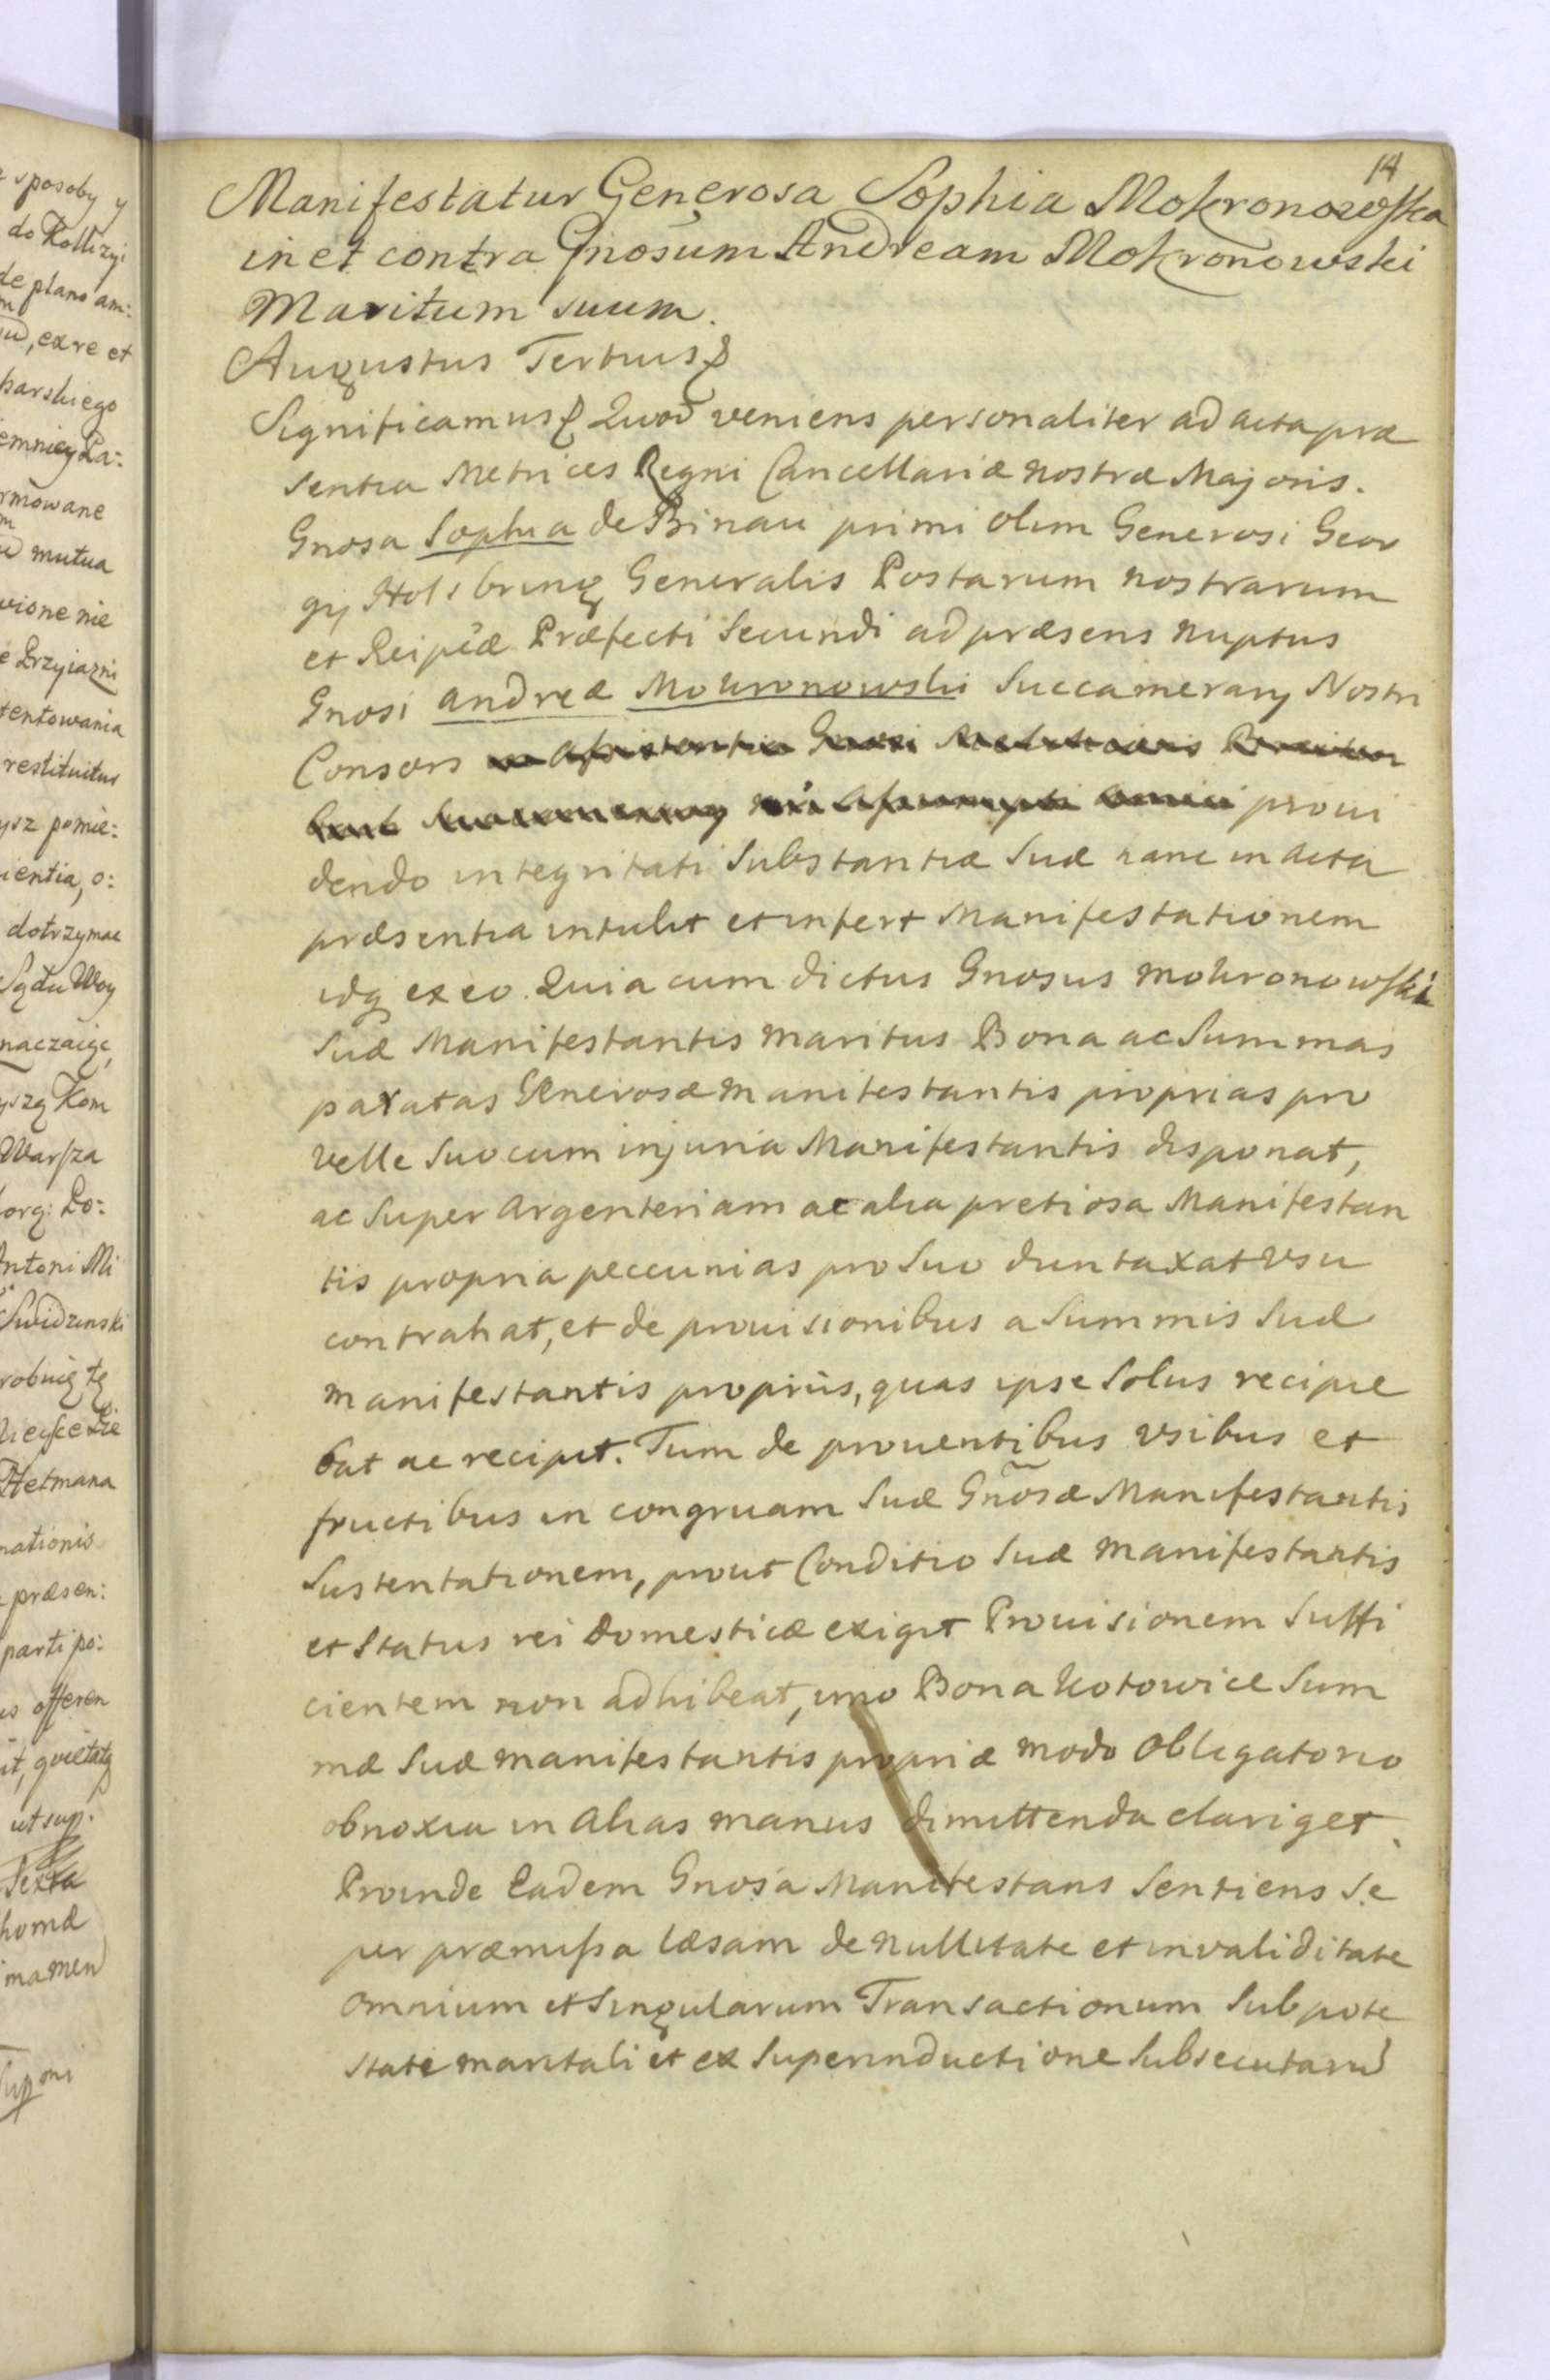 sposoby y
do Kollizyi
de plano am:
, ex re et
karskiego
emniey Za:
rmowane
mutua
vione nie
e Przyiazni
tentowania
restituitur
ysz pomie:
ientia, o:
dotrzymac
Sądu Woy
naczaiąc,
yszą Kom
Warsza
org: Po:
Antoni Mi
Swidzinski
robnią tę
Hetmana
nationis
præsen:
parti po:
is offeren
it, quietatq
ut sup.
Sexta
homæ
14
Manifestatur Generosa Sophia Mokronowska
in et contra Gnosum Andream Mokronowski
Maritum suum.
Augustus Tertius
Significamus Quod veniens personaliter ad acta præ
sentia Metrices Regni Cancellariæ nostræ Majoris.
Gnosa Sophia de Binau primi olim Generosi Geor
gij Holsbring Generalis Postarum nostrarum
et Reipcæ Præfecti Secundi ad præsens nuptus
Gnosi Andreæ Mokronowski Succamerarij Nostri
Consors in assistentia Gnosi
assumpti amici proui
dendo integritati Substantiæ Suæ hanc in acta
præsentia intulit et infert Manifestationem
idq ex eo. Quia cum dictus Gnosus Mokronowski
Suæ Manifestantis maritus Bona ac Summas
paratas Generosæ Manifestantis proprias pro
velle Suo cum injuria Manifestantis disponat,
ac Super Argenteriam ac alia pretiosa Manifestan
tis propria peccunias pro Suo duntaxat vsu
contrahat, et de prouisionibus a Summis Suæ
manifestantis proprijs, quas ipse Solus recipie
bat ac recipit. Tum de prouentibus vsibus et
fructibus in congruam Suæ Gnosæ Manifestantis
Sustentationem, prout Conditio Suæ manifestantis
et Status rei Domesticæ exigit Prouisionem Suffi
cientem non adhibeat, imo Bona Kotowice Sum
mæ Suæ manifestantis propriæ modo Obligatorio
obnoxia in Alias manus dimittenda clariget.
Proinde Eadem Gnosa Manifestans Sentiens Se
per præmissa læsam de nullitate et invaliditate
omnium et Singularum Transactionum Sub pote
state maritali et ex Superinductione Subsecutaru